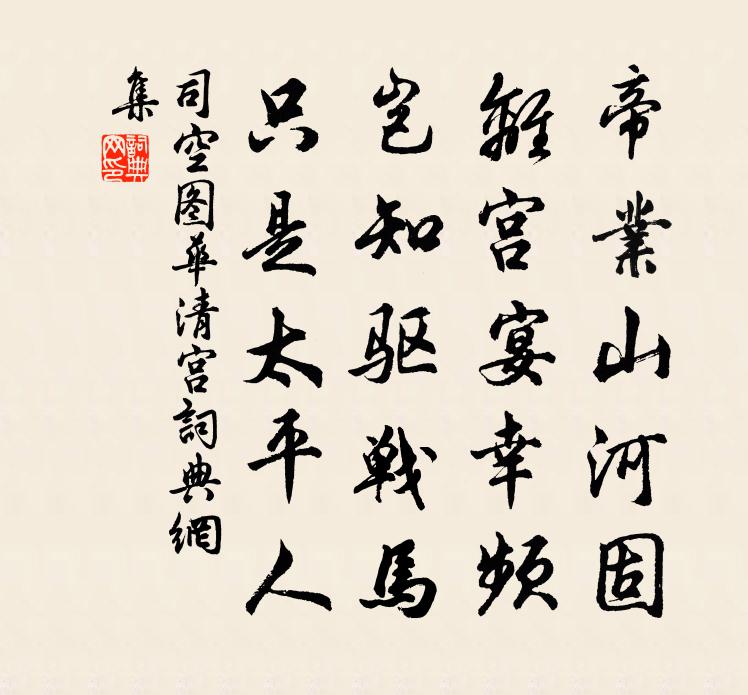 帝業山河固
離宮宴幸頻
豈知驅戰馬
只是太平人
司空图華清宮詞典網
集
詞典網印